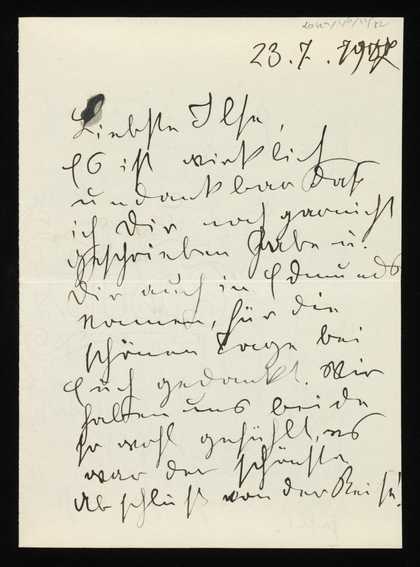 23.7.
Liebste Ilse,
Es ist wirklich
undankbar daß
ich Dir noch garnicht
geschrieben habe u.
Dir auch in Edmunds
Namen, für die
schönen Tage bei
Euch gedankt. Wir
hatten uns beide
so wohl gefühlt, es
war der schönste
Abschluß von der Reise!